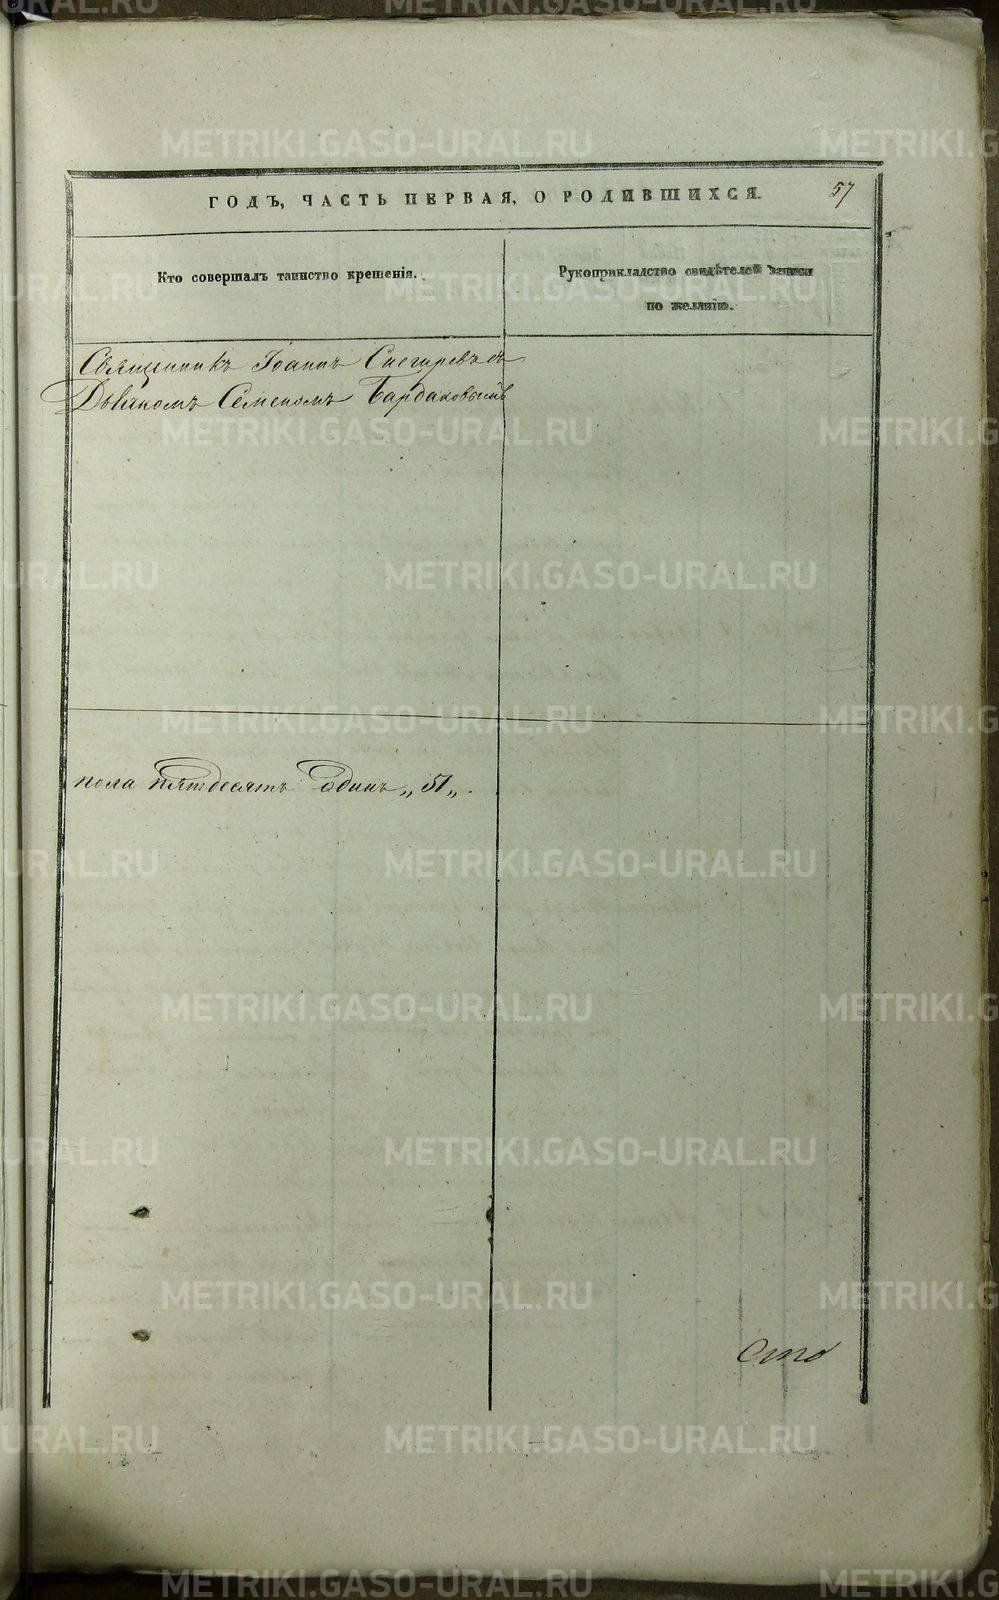 ГОДЪ, ЧАСТЬ ПЕРВАЯ, О РОДИВШИХСЯ.
57
Кто совершалъ таинство крещенія.
Рукоприкладство свидѣтелей записи
по желанію.
Священникъ Іоаннъ Снегиревъ съ
Дьячкомъ Семеномъ Бардаковымъ
пола пятдесятъ одинъ „51„.
METRIKI.GASO-URAL.RU